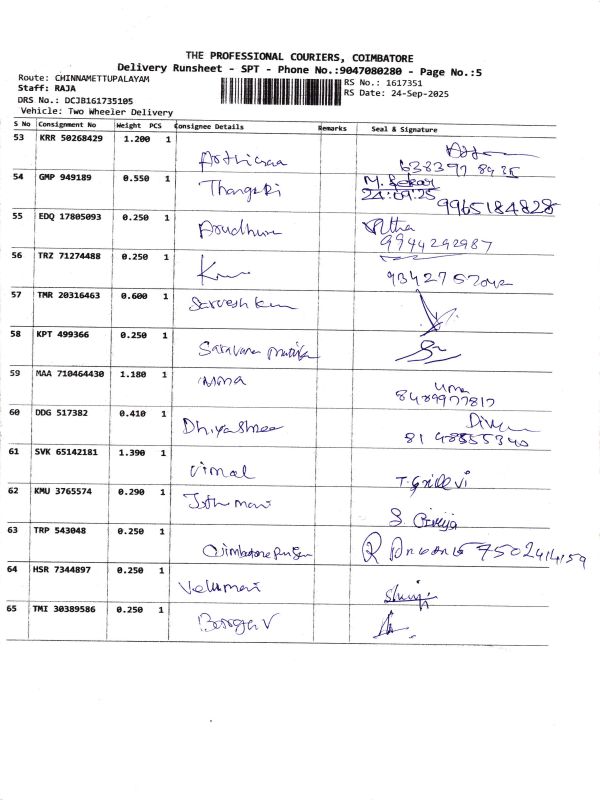 THE PROFESSIONAL COURIERS, COIMBATORE
Delivery Runsheet - SPT - Phone No.:9047080280 - Page No.:5
Route: CHINNAMETTUPALAYAM
Staff: RAJA
DRS No.: DCJB161735105
Vehicle: Two Wheeler Delivery
RS No.: 1617351
RS Date: 24-Sep-2025
S No Consignment No Weight PCS Consignee Details Remarks Seal & Signature
53 KRR 50268429 1.200 1
54 GMP 949189 0.550 1 M. Sekar
24-09-25 9965184828
55 EDQ 17805093 0.250 1
9944292987
56 TRZ 71274488 0.250 1
57 TMR 20316463 0.600 1
58 KPT 499366 0.250 1
59 MAA 710464430 1.180 1 uma Uma
8489977817
60 DDG 517382 0.410 1 Dhiyashree
61 SVK 65142181 1.390 1 Vimal T. Sridevi
62 KMU 3765574 0.290 1
63 TRP 543048 0.250 1 7502414159
64 HSR 7344897 0.250 1 Velumani
65 TMI 30389586 0.250 1